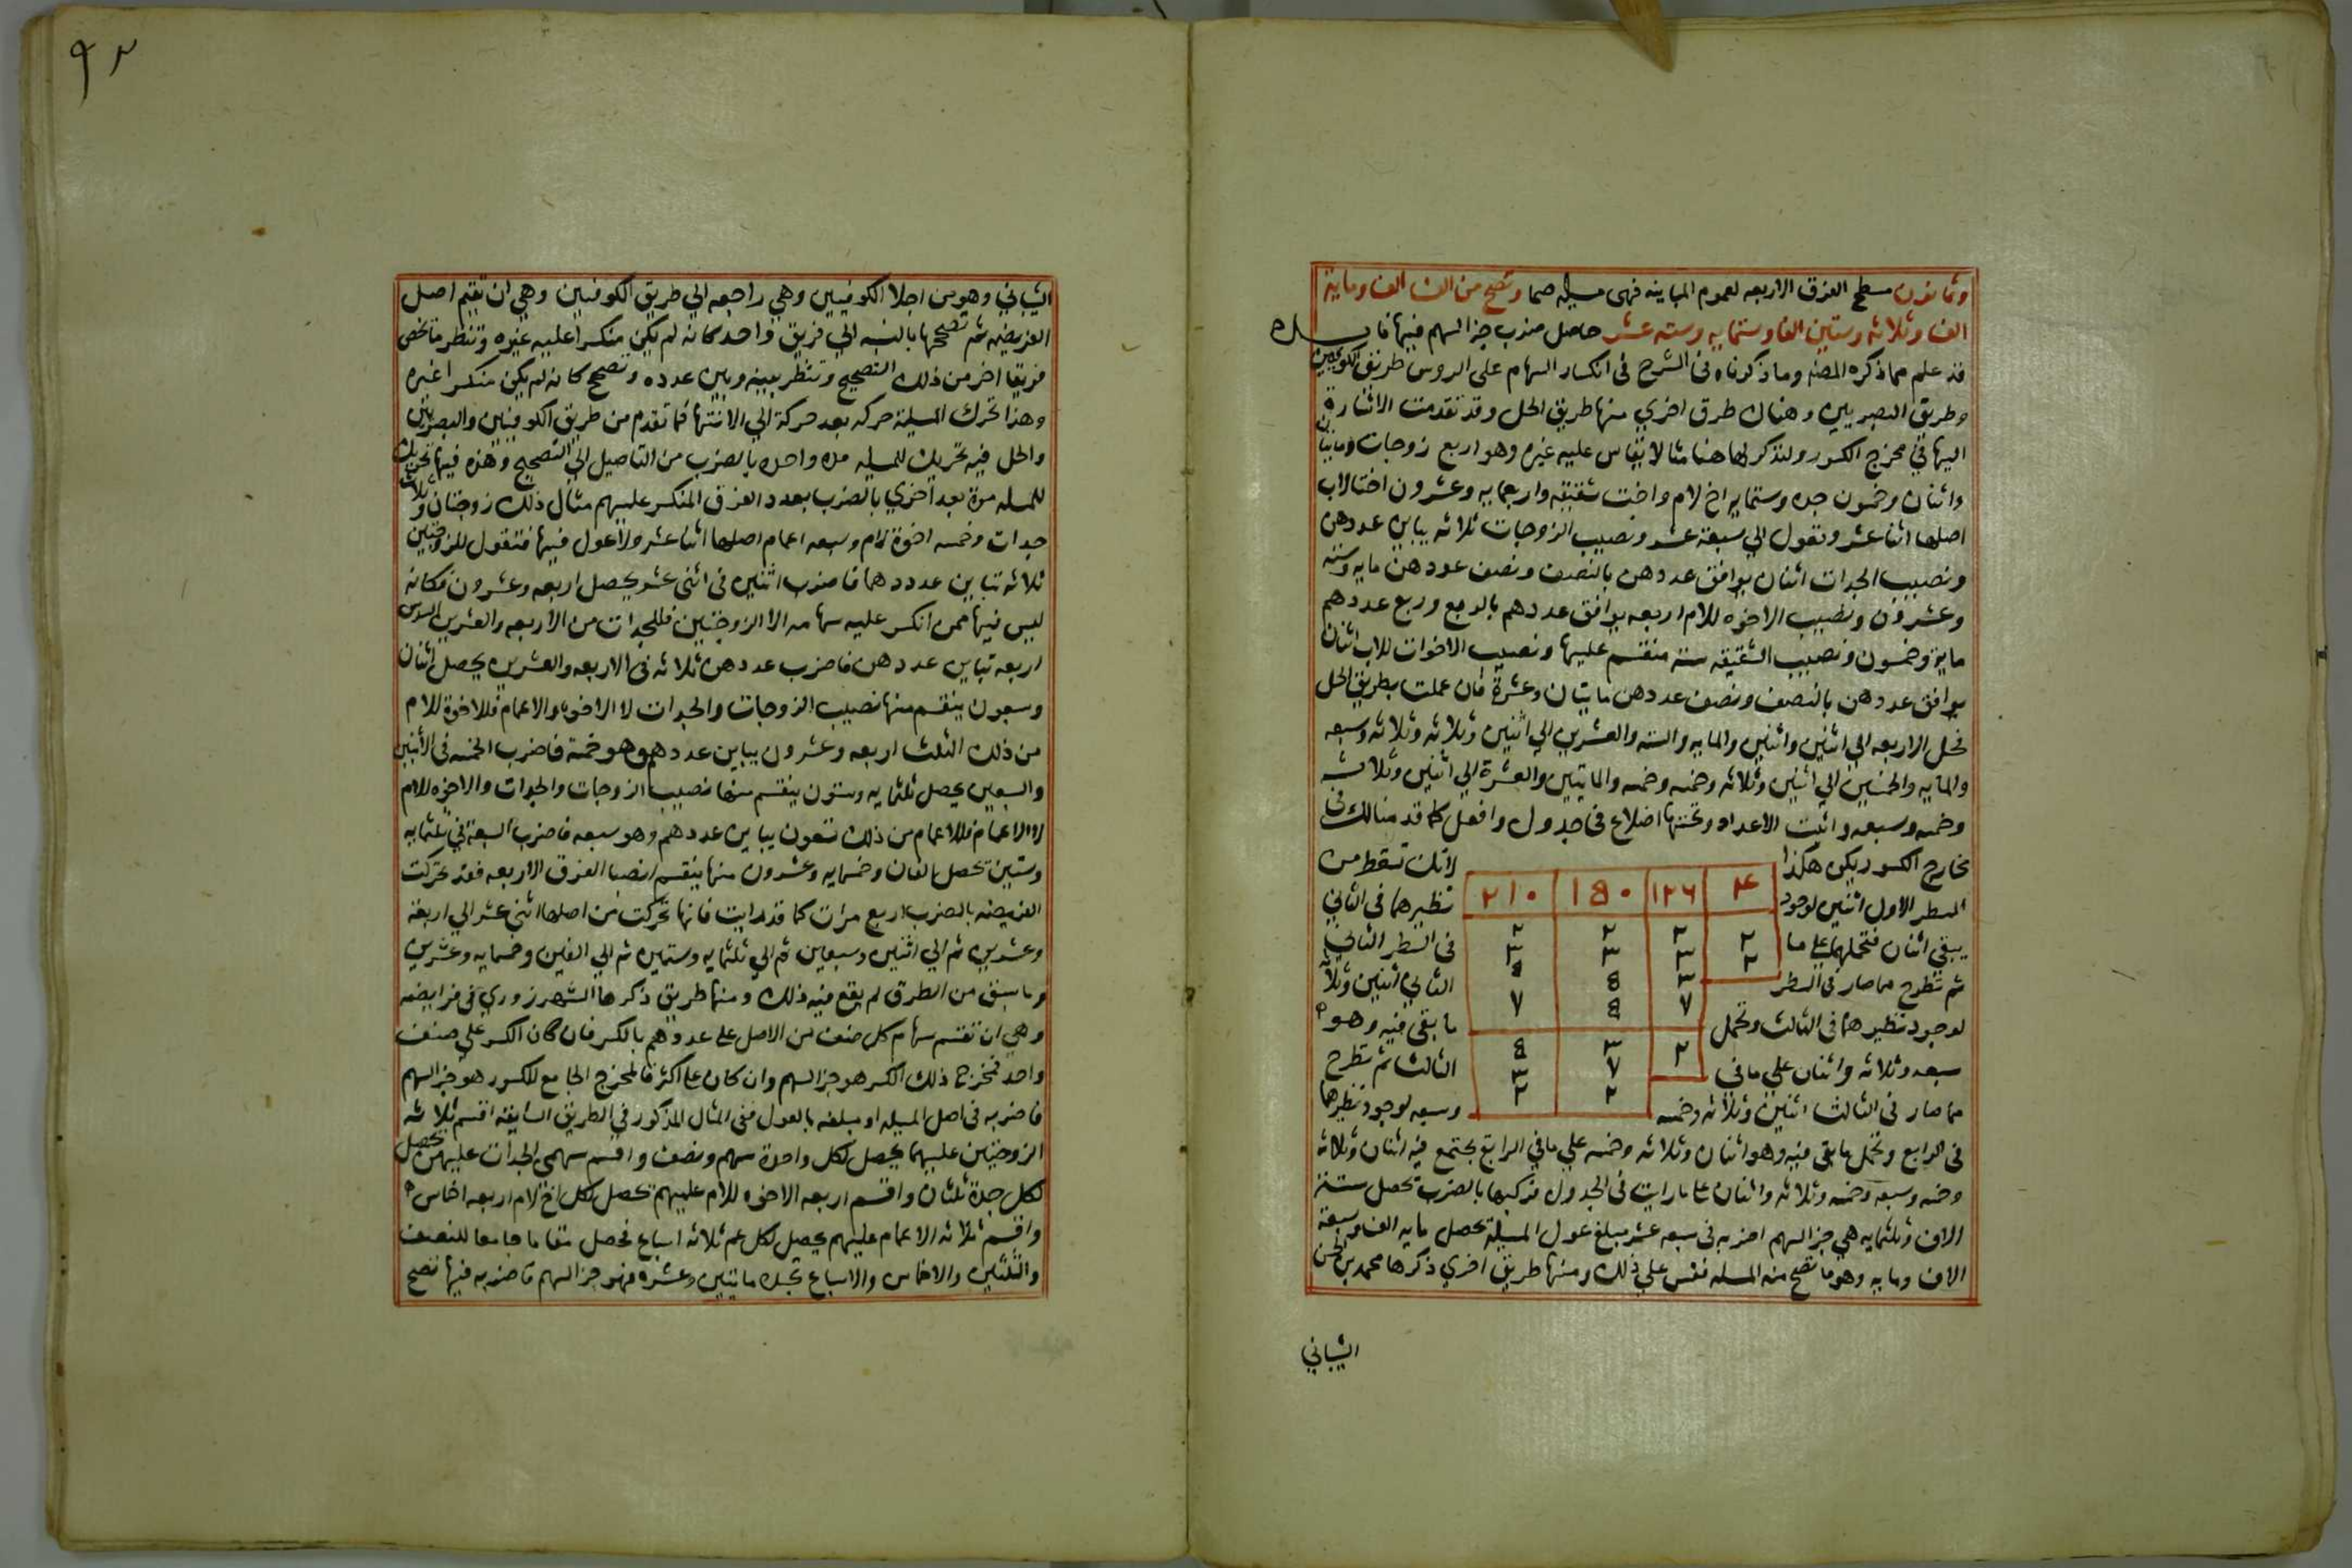 وثمانون مسطح الفرق الاربعه لعموم المباينه فهى مسله صما وتصح من الف الف ومايه
الف وثلاثه وستين الفا وستمايه وسته عشر حاصل ضرب جز السهم فيها
قد علم مما ذكره المصنف وما ذكرناه فى الشرح فى انكسار السهام على الروس طريق الكوفيين
وطريق البصريين وهناك طرق اخري منها طريق الحل وقد تقدمت الاشارة
اليها في مخرج الكسور ولنذكر لها هنا مثالا يقاس عليه غيره وهو اربع زوجات ومايتا
واثنان وخمسون جده وستمايه اخ لام واخت شقيقه واربعمايه وعشرون اختا لاب
اصلها اثنا عشر وتعول الي سبعة عشر ونصيب الزوجات ثلاثه يباين عددهن
ونصيب الجدات اثنان يوافق عددهن بالنصف ونصف عددهن مايه وسته
وعشرون ونصيب الاخوه للام اربعه يوافق عددهم بالربع وربع عددهم
مايه وخمسون ونصيب الشقيقه سته منقسم عليها ونصيب الاخوات للاب اثنان
يوافق عددهن بالنصف ونصف عددهن مايتان وعشرة فان عملت بطريق الحل
فحل الاربعه الي اثنين واثنين والمايه والسته والعشرين الي اثنين وثلاثه وثلاثه وسبعه
والمايه والخمسين الي اثنين وثلاثه وخمسه وخمسه والمايتين والعشرة الي اثنين وثلاثه
وخمسه وسبعه واثبت الاعداد وتحتها اضلاع فى جدول وافعل كما قدمنا لك فى
مخارج الكسور يكن هكذا لانك تسقط من
٤ ١٢٦ ١٥٠ ٢١٠
السطر الاول اثنين لوجود نظيرهما فى الثاني
٢ ٢ ٢ ٢
يبقى اثنان فتحملهما على ما فى السطر الثاني
٢ ٣ ٣ ٣
ثم تطرح مما صار فى السطر الثاني اثنين وثلاثه
٣ ٥ ٥
٧ ٥ ٧
لوجود نظيرهما فى الثالث وتحمل ما بقى فيه وهو
٢ ٣ ٥
سبعه وثلاثه واثنان علي ما في الثالث ثم تطرح
٧ ٣
مما صار فى الثالث اثنين وثلاثه وخمسه وسبعه لوجود نظيرهما
٢ ٢
فى الرابع وتحمل ما بقى فيه وهو اثنان وثلاثه وخمسه علي ما في الرابع يجتمع فيه اثنان وثلاثه
وخمسه وسبعه وخمسه وثلاثه واثنان على ما رايت فى الجدول فركبها بالضرب تحصل ستة
الاف وثلثمايه هي جز السهم اضربه فى سبعه عشر مبلغ عول المسيلة تحصل مايه الف وسبعة
الاف ومايه وهو ما تصح منه المسله فقس علي ذلك ومنها طريق اخري ذكرها محمد بن الحسن
الشباني
٩٢
الشباني وهو من اجلا الكوفيين وهي راجعه الي طريق الكوفيين وهي ان تقيم اصل
الفريضه ثم تصححها بالنسبه الي فريق واحد كانه لم يكن منكسرا عليه غيره وتنظر ما يخص
فريقا اخر من ذلك التصحيح وتنظر بينه وبين عدده وتصحح كانه لم يكن منكسرا غيره
وهذا تحرك المسيلة حركه بعد حركة الي الانتها فما تقدم من طريق الكوفيين والبصريين
والحل فيه تحريك للمسيله مره واحده بالضرب من التاصيل الي التصحيح وهذه فيها تحريك
للمسله مرة بعد اخري بالضرب بعدد الفرق المنكسر عليهم مثال ذلك زوجتان وثلاث
جدات وخمسه اخوة لام وسبعه اعمام اصلها اثنا عشر ولا عول فيها فتقول للزوجتين
ثلاثه تباين عددهما فاضرب اثنين فى اثنى عشر يحصل اربعه وعشرون فكانه
ليس فيها ممن انكسر عليه سهامه الا الزوجتين فللجدات من الاربعه والعشرين السدس
اربعه تباين عددهن فاضرب عددهن ثلاثه فى الاربعه والعشرين يحصل اثنان
وسبعون ينقسم منها نصيب الزوجات والجدات لا الاخوه والاعمام فللاخوة للام
من ذلك الثلث اربعه وعشرون يباين عددهم وهو خمسة فاضرب الخمسه فى الاثنين
والسبعين يحصل ثلثمايه وستون ينقسم منها نصيب الزوجات والجدات والاخوه للام
لا الاعمام فللاعمام من ذلك تسعون يباين عددهم وهو سبعه فاضرب السبعة في ثلثمايه
وستين تحصل الفان وخمسمايه وعشرون منها ينقسم انصبا الفرق الاربعه فقد تحركت
الفريضه بالضرب اربع مرات كما قد رايت فانها تحركت من اصلها اثني عشر الي اربعة
وعشرين ثم الي اثنين وسبعين ثم الي ثلثمايه وستين ثم الي الفين وخمسمايه وعشرين
وما سبق من الطرق لم يقع فيه ذلك ومنها طريق ذكرها الشهرزوري فى فرايضه
وهي ان تقسم سهام كل صنف من الاصل على عددهم بالكسر فان كان الكسر علي صنف
واحد فمخرج ذلك الكسر هو جز السهم وان كان على اكثر فالمخرج الجامع للكسور هو جز السهم
فاضربه فى اصل المسيله او مبلغه بالعول ففى المثال المذكور في الطريق السابقه اقسم ثلاثه
الزوجتين عليهما يحصل لكل واحدة سهم ونصف واقسم سهمى الجدات عليهن يحصل
لكل جدة ثلثان واقسم اربعه الاخوه للام عليهم تحصل لكل اخ لام اربعه اخماس
واقسم ثلاثه الاعمام عليهم يحصل لكل عم ثلاثه اسباع فحصل مقاما جامعا للنصف
والثلثين والاخماس والاسباع تجده مايتين وعشره فهو جز السهم فاضربه فيها تصح